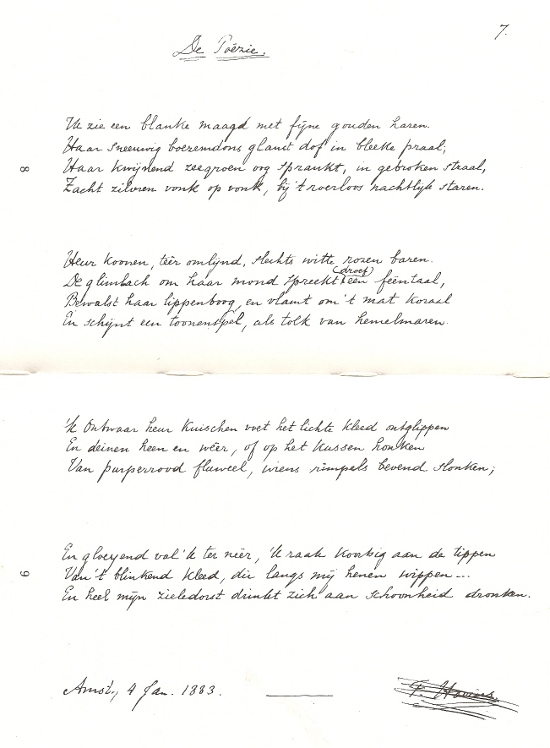 7.
De Poëzie.
'k zie een blanke maagd met fijne gouden haren.
Haar sneeuwig boezemdons glanst dof in bleeke praal;
8
Haar kwijnend zeegroen oog sprankt, in gebroken straal,
Zacht zilvren vonk op vonk, bij 't roerloos nachtlijk staren.
Heur koonen, teêr omlijnd, slechts witte rozen baren.
(droef)
De glimlach om haar mond spreekt een feëntaal,
Bewalst haar lippenboog, en vlamt om 't mat koraal
En schijnt een toonenspel, als tolk van hemelmaren.
'k Ontwaar heur kuischen voet het lichte kleed ontglippen
En deinen heen en wêer, of op het kussen honken
Van purperrood fluweel, wiens rimpels bevend slonken;
En gloeyend val 'k ter nêer, 'k raak konkig aan de tippen
9
Van 't blinkend kleed, die langs mij henen wippen...
En heel mijn zieledorst drinkt zich aan schoonheid dronken.
Amst, 4 Jan. 1883.